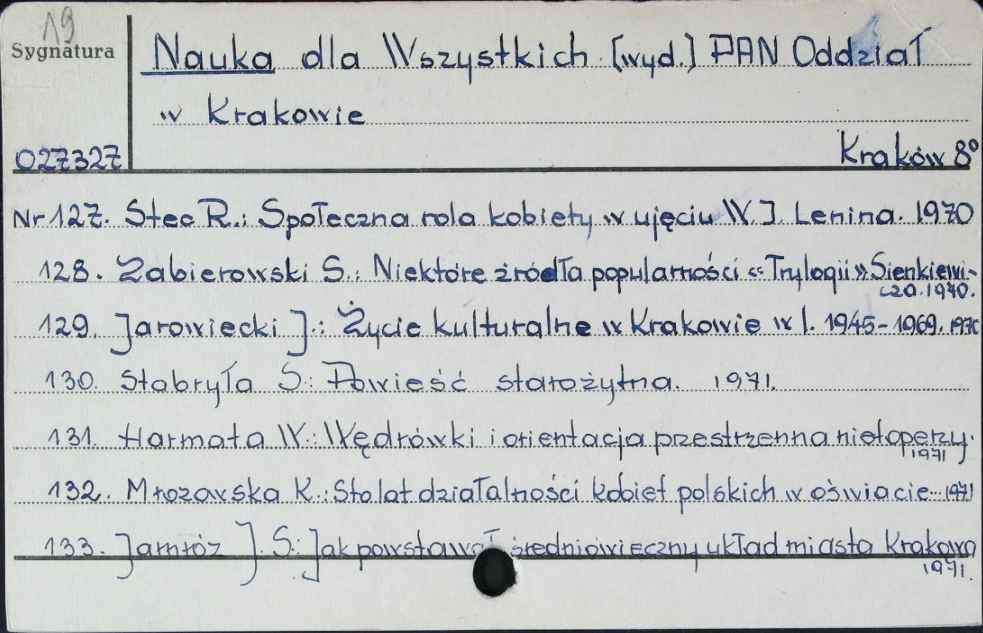 19
Sygnatura
Nauka dla Wszystkich [wyd.] PAN Oddział
w Krakowie
027327
Kraków 8°
Nr 127. Stec R.: Społeczna rola kobiety w ujęciu W. I. Lenina. 1970
128. Zabierowski S.: Niektóre źródła popularności «Trylogii» Sienkiewi-
cza. 1970.
129. Jarowiecki J.: Życie kulturalne w Krakowie w l. 1945-1969. 1970
130. Stabryła S.: Powieść starożytna. 1971.
131. Harmata W.: Wędrówki i orientacja przestrzenna nietoperzy.
1971
132. Mrozowska K.: Sto lat działalności kobiet polskich w oświacie... 1971
133. Jamróz J. S.: Jak powstawał średniowieczny układ miasta Krakowa
1971.